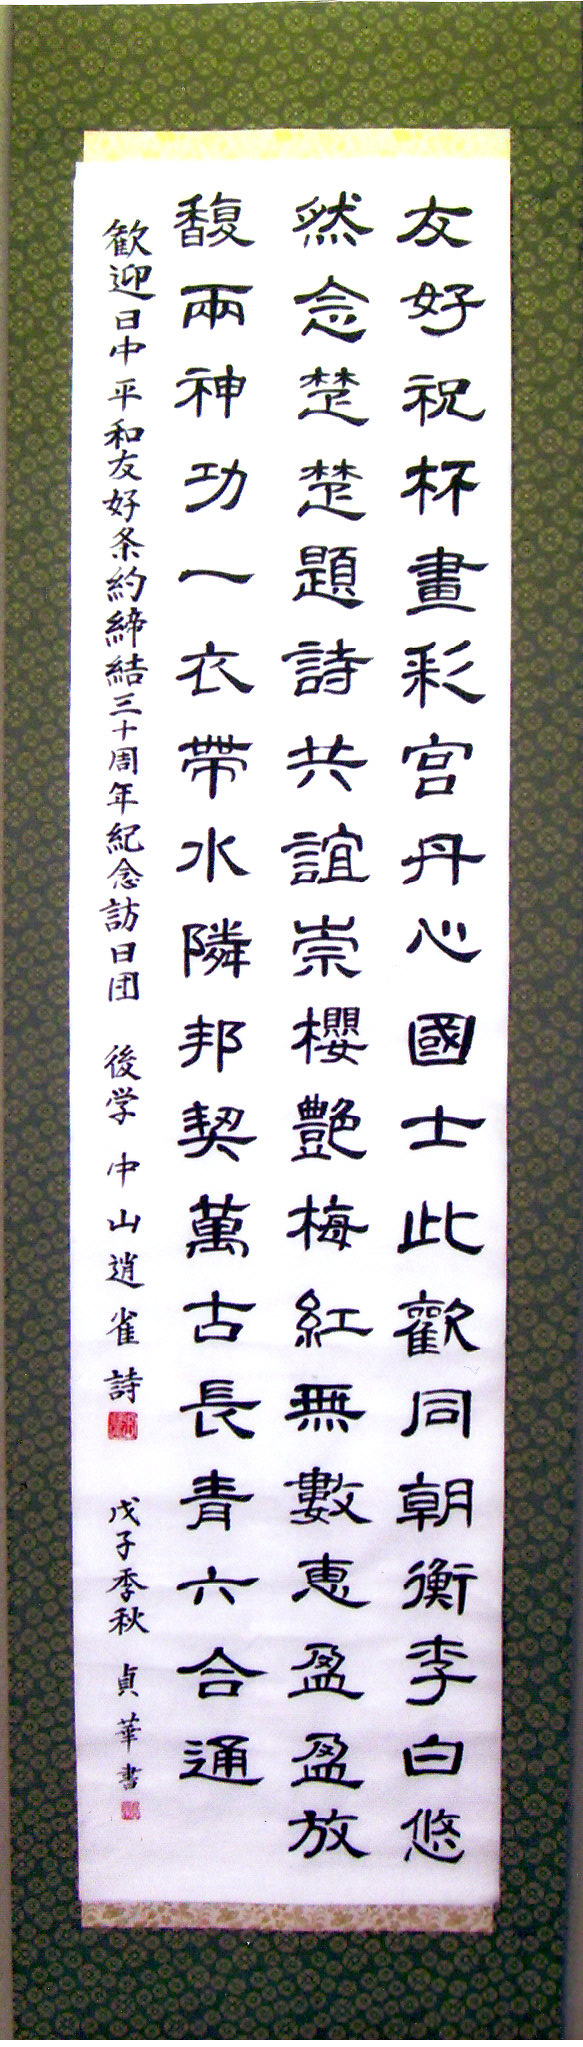 友好祝杯畫彩宮丹心國士此歡同朝衡李白悠
然念楚楚題詩共誼崇櫻艶梅紅無數恵盈盈放
馥兩神功一衣帶水隣邦契萬古長青六合通
歓迎日中平和友好条約締結三十周年紀念訪日団 後学 中山逍雀詩
戊子季秋 貞華書